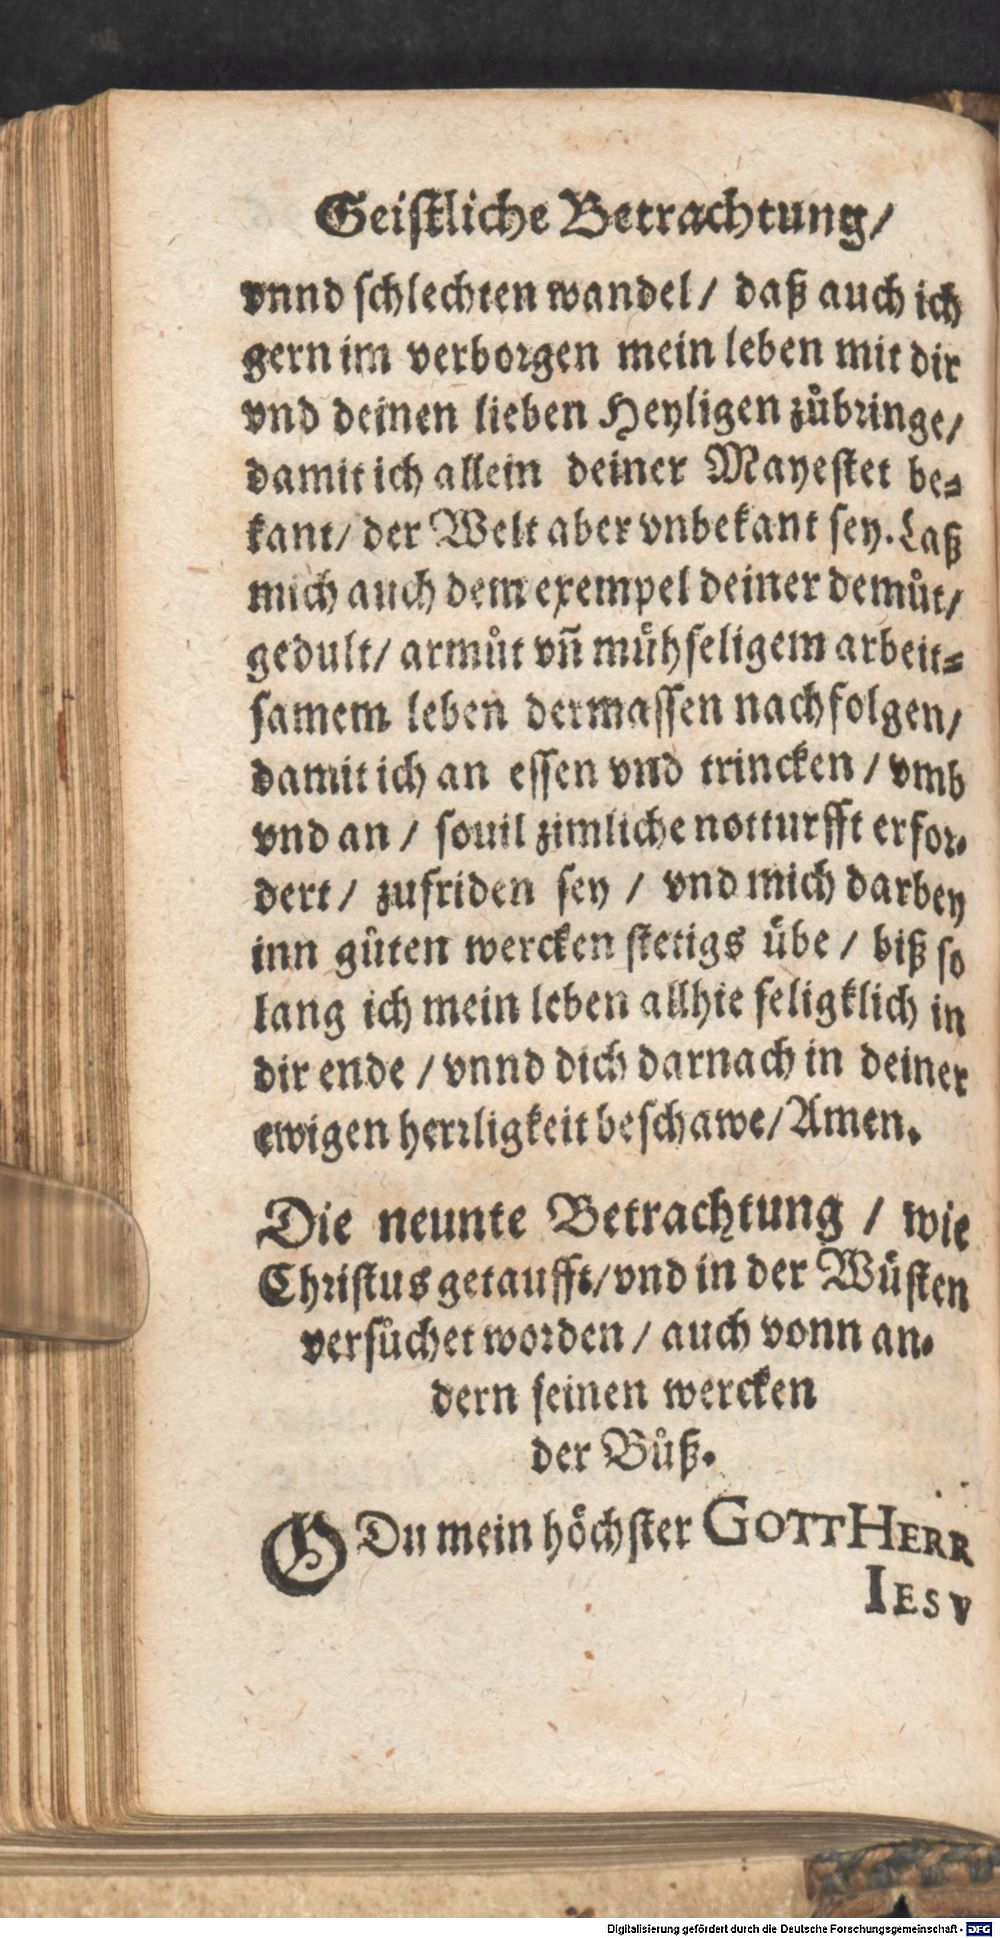 Geiſtliche Betrachtung/
vnnd ſchlechten wandel/ daß auch ich
gern im verborgen mein leben mit dir
vnd deinen lieben Heyligen zůbringe/
damit ich allein deiner Mayeſtet be⸗
kant/ der Welt aber vnbekant ſey. Laß
mich auch dem exempel deiner demůt/
gedult/ armůt vñ muͤhſeligem arbeit⸗
ſamem leben dermaſſen nachfolgen/
damit ich an eſſen vnd trincken/ vmb
vnd an/ ſouil zimliche notturfft erfor⸗
dert/ zufriden ſey/ vnd mich darbey
inn gůten wercken ſtetigs uͤbe/ biß ſo
lang ich mein leben allhie ſeligklich in
dir ende/ vnnd dich darnach in deiner
ewigen herꝛligkeit beſchawe/ Amen.
Die neunte Betrachtung/ wie
Chriſtus getaufft/ vnd in der Wuͤſten
verſůchet worden/ auch vonn an⸗
dern ſeinen wercken
der Bůß.
O Du mein hoͤchſter GOTT HERR
IESV
Digitalisierung gefördert durch die Deutsche Forschungsgemeinschaft - DFG